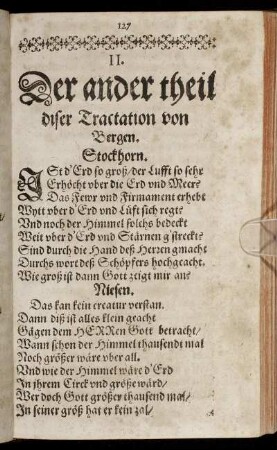 127
II.
Der ander theil
diser Tractation von
Bergen.
Stockhorn.
ISt d'Erd so groß/der Lufft so sehr
Erhöcht vber die Erd vnd Meer?
Das Fewr vnd Firmament erhebt
Wytt vber d'Erd vnd Lüft sich regt?
Vnd noch der Himmel solchs bedeckt
Weit vber d'Erd vnd Stärnen g'streckt?
Sind durch die Hand deß Herren gmacht
Durchs wort deß Schöpfers hochgeacht.
Wie groß ist dann Gott zeigt mir an?
Niesen.
Das kan kein creatur verstan.
Dann diß ist alles klein geacht
Gägen dem HERRen Gott betracht/
Wann schon der Himmel thausendt mal
Noch größer wäre vber all.
Vnd wie der Himmel wäre d'Erd
In jhrem Circk vnd größe wärd/
Wer doch Gott größer thausend mal/
In seiner größ hat er kein zal/
A